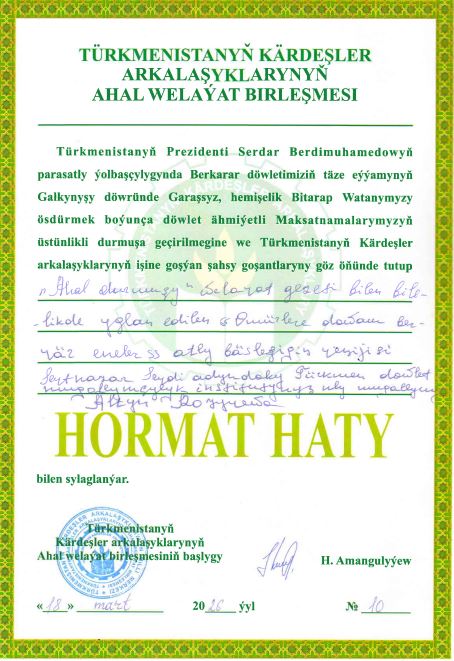 TÜRKMENISTANYŇ KÄRDEŞLER
ARKALAŞYKLARYNYŇ
AHAL WELAÝAT BIRLEŞMESI
Türkmenistanyň Prezidenti Serdar Berdimuhamedowyň
parasatly ýolbaşçylygynda Berkarar döwletimiziň täze eýýamynyň
Galkynyşy döwründe Garaşsyz, hemişelik Bitarap Watanymyzy
ösdürmek boýunça döwlet ähmiýetli Maksatnamalarymyzyň
üstünlikli durmuşa geçirilmegine we Türkmenistanyň Kärdeşler
arkalaşyklarynyň işine goşýan şahsy goşantlaryny göz öňünde tutup
"Ahal durmuşy" welaýat gazeti bilen bile-
likde yglan edilen «Ömürlere dowam ber-
ýän eneler» atly bäsleşigiň ýeňijisi
Seýitnazar Seýdi adyndaky Türkmen döwlet
mugallymçylyk institutynyň uly mugallymy
HORMAT HATY
bilen sylaglanýar.
Türkmenistanyň
Kärdeşler arkalaşyklarynyň
Ahal welaýat birleşmesiniň başlygy
H. Amangulyýew
«18» mart 2026 ýyl № 10